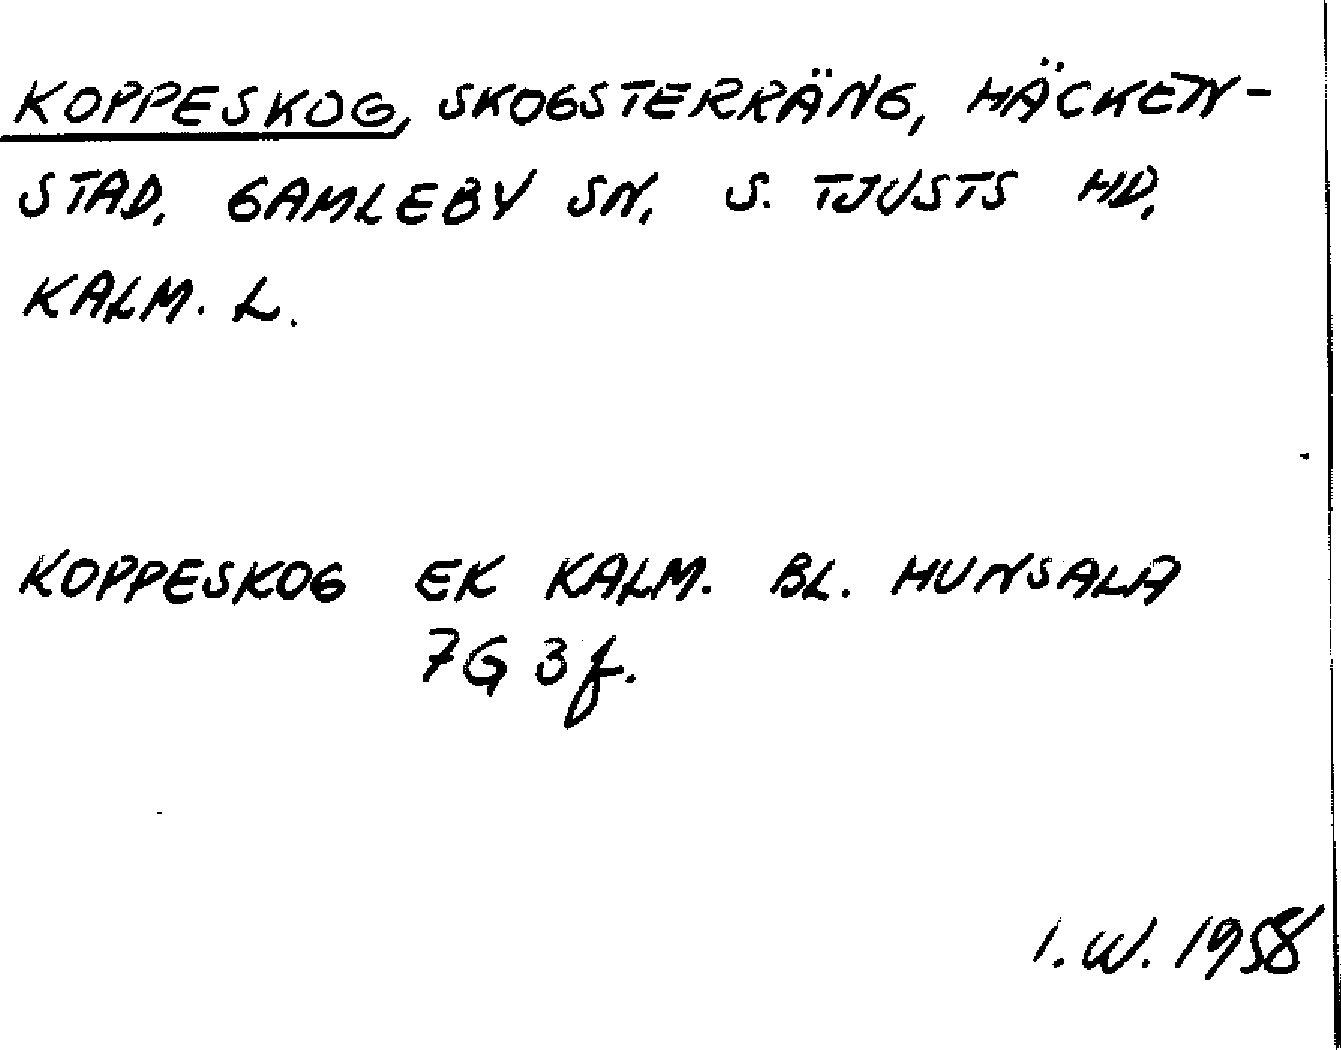 KOPPESKOG, SKOGSTERRÄNG, HÄCKEN-
STAD, GAMLEBY SN, S. TJUSTS HD,
KALM. L.
KOPPESKOG EK KALM. BL. HUNSALA
7G 3f.
I.W. 1958